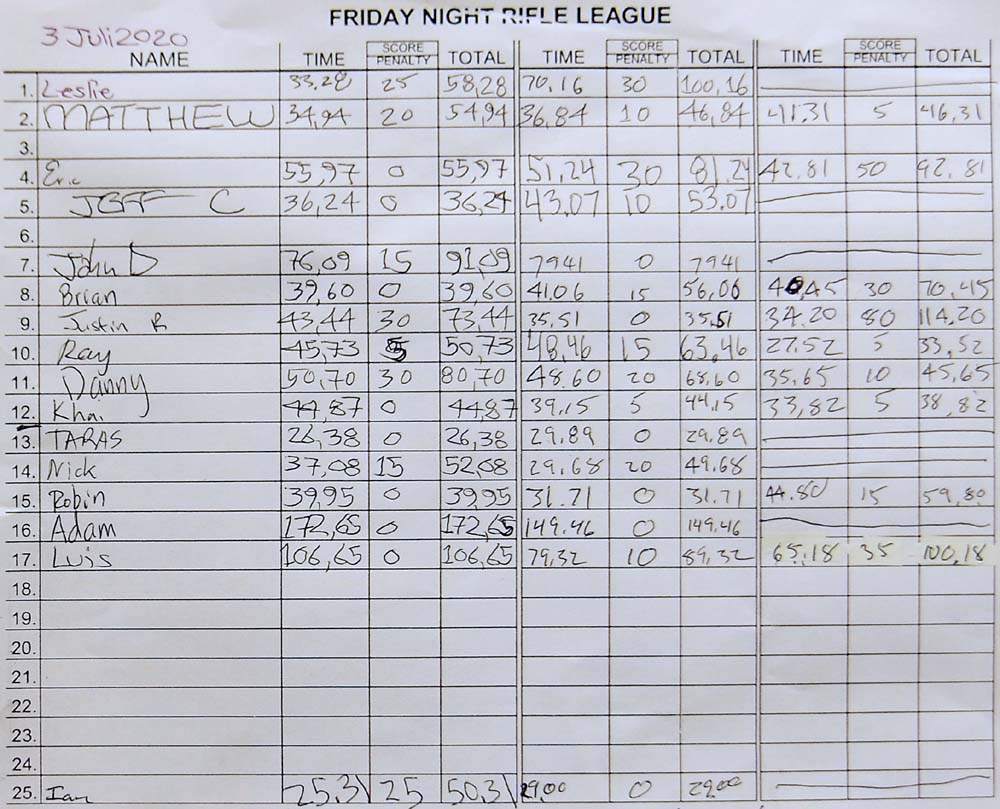 FRIDAY NIGHT RIFLE LEAGUE
3 Juli 2020
NAME TIME SCORE PENALTY TOTAL TIME SCORE PENALTY TOTAL TIME SCORE PENALTY TOTAL
1. Leslie 33,28 25 58,28 70,16 30 100,16
2. MATTHEW 34,94 20 54,94 36,84 10 46,84 41.31 5 46,31
3.
4. Eric 55,97 0 55,97 51,24 30 81.24 42.81 50 92.81
5. JEFF C 36,24 0 36,24 43.07 10 53.07
6.
7. John D 76,09 15 91,09 7941 0 7941
8. Brian 39,60 0 39,60 41.06 15 56,06 40.45 30 70.45
9. Justin R 43,44 30 73,44 35.51 0 35.51 34.20 80 114.20
10. Ray 45,73 5 50,73 48,46 15 63,46 27.52 5 33,52
11. Danny 50,70 30 80,70 48.60 20 68,60 35.65 10 45.65
12. Khai 44,87 0 44,87 39,15 5 44,15 33,82 5 38,82
13. TARAS 26,38 0 26,38 29.89 0 29.89
14. Nick 37,08 15 52,08 29.68 20 49.68
15. Robin 39,95 0 39,95 31.71 0 31.71 44.80 15 59,80
16. Adam 172,65 0 172,65 149.46 0 149.46
17. Luis 106,65 0 106,65 79,32 10 89,32 65.18 35 100,18
18.
19.
20.
21.
22.
23.
24.
25. Ian 25,31 25 50,31 29,00 0 29,00